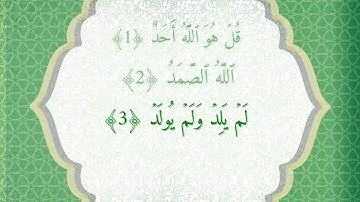 قُلۡ هُوَ ٱللَّهُ أَحَدٌ ﴿1﴾
ٱللَّهُ ٱلصَّمَدُ ﴿2﴾
لَمۡ يَلِدۡ وَلَمۡ يُولَدۡ ﴿3﴾